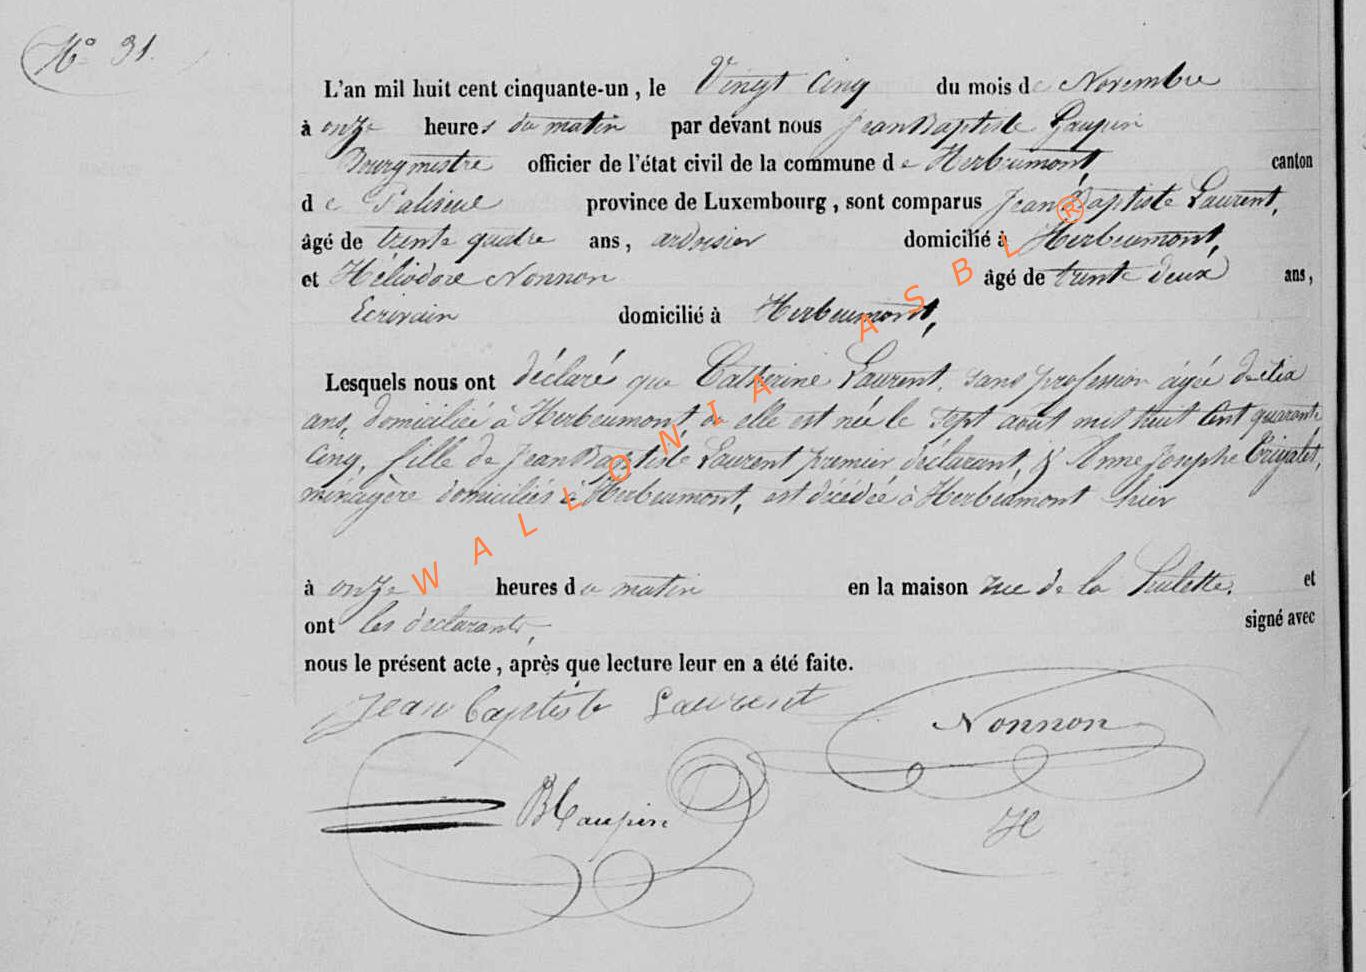 N° 31.
L'an mil huit cent cinquante-un, le Vingt Cinq du mois de Novembre
à onze heures du matin par devant nous Jean Baptiste Gaupin
Bourgmestre officier de l'état civil de la commune de Herbeumont, canton
de Paliseul province de Luxembourg, sont comparus Jean Baptiste Laurent,
âgé de trente quatre ans, ardoisier domicilié à Herbeumont,
et Héliodore Nonnon âgé de trente deux ans,
Ecrivain domicilié à Herbeumont,
Lesquels nous ont déclaré que Catherine Laurent, sans profession âgée de six
ans, domiciliée à Herbeumont où elle est née le sept août mil huit Cent quarante
Cinq, fille de Jean Baptiste Laurent premier déclarant, & Anne Josephe
ménagère domiciliés à Herbeumont, est décédée à Herbeumont hier
à onze heures du matin en la maison rue de la et
ont les déclarants, signé avec
nous le présent acte, après que lecture leur en a été faite.
Jean Baptiste Laurent
Nonnon
H
WALLONIA ASBL ®